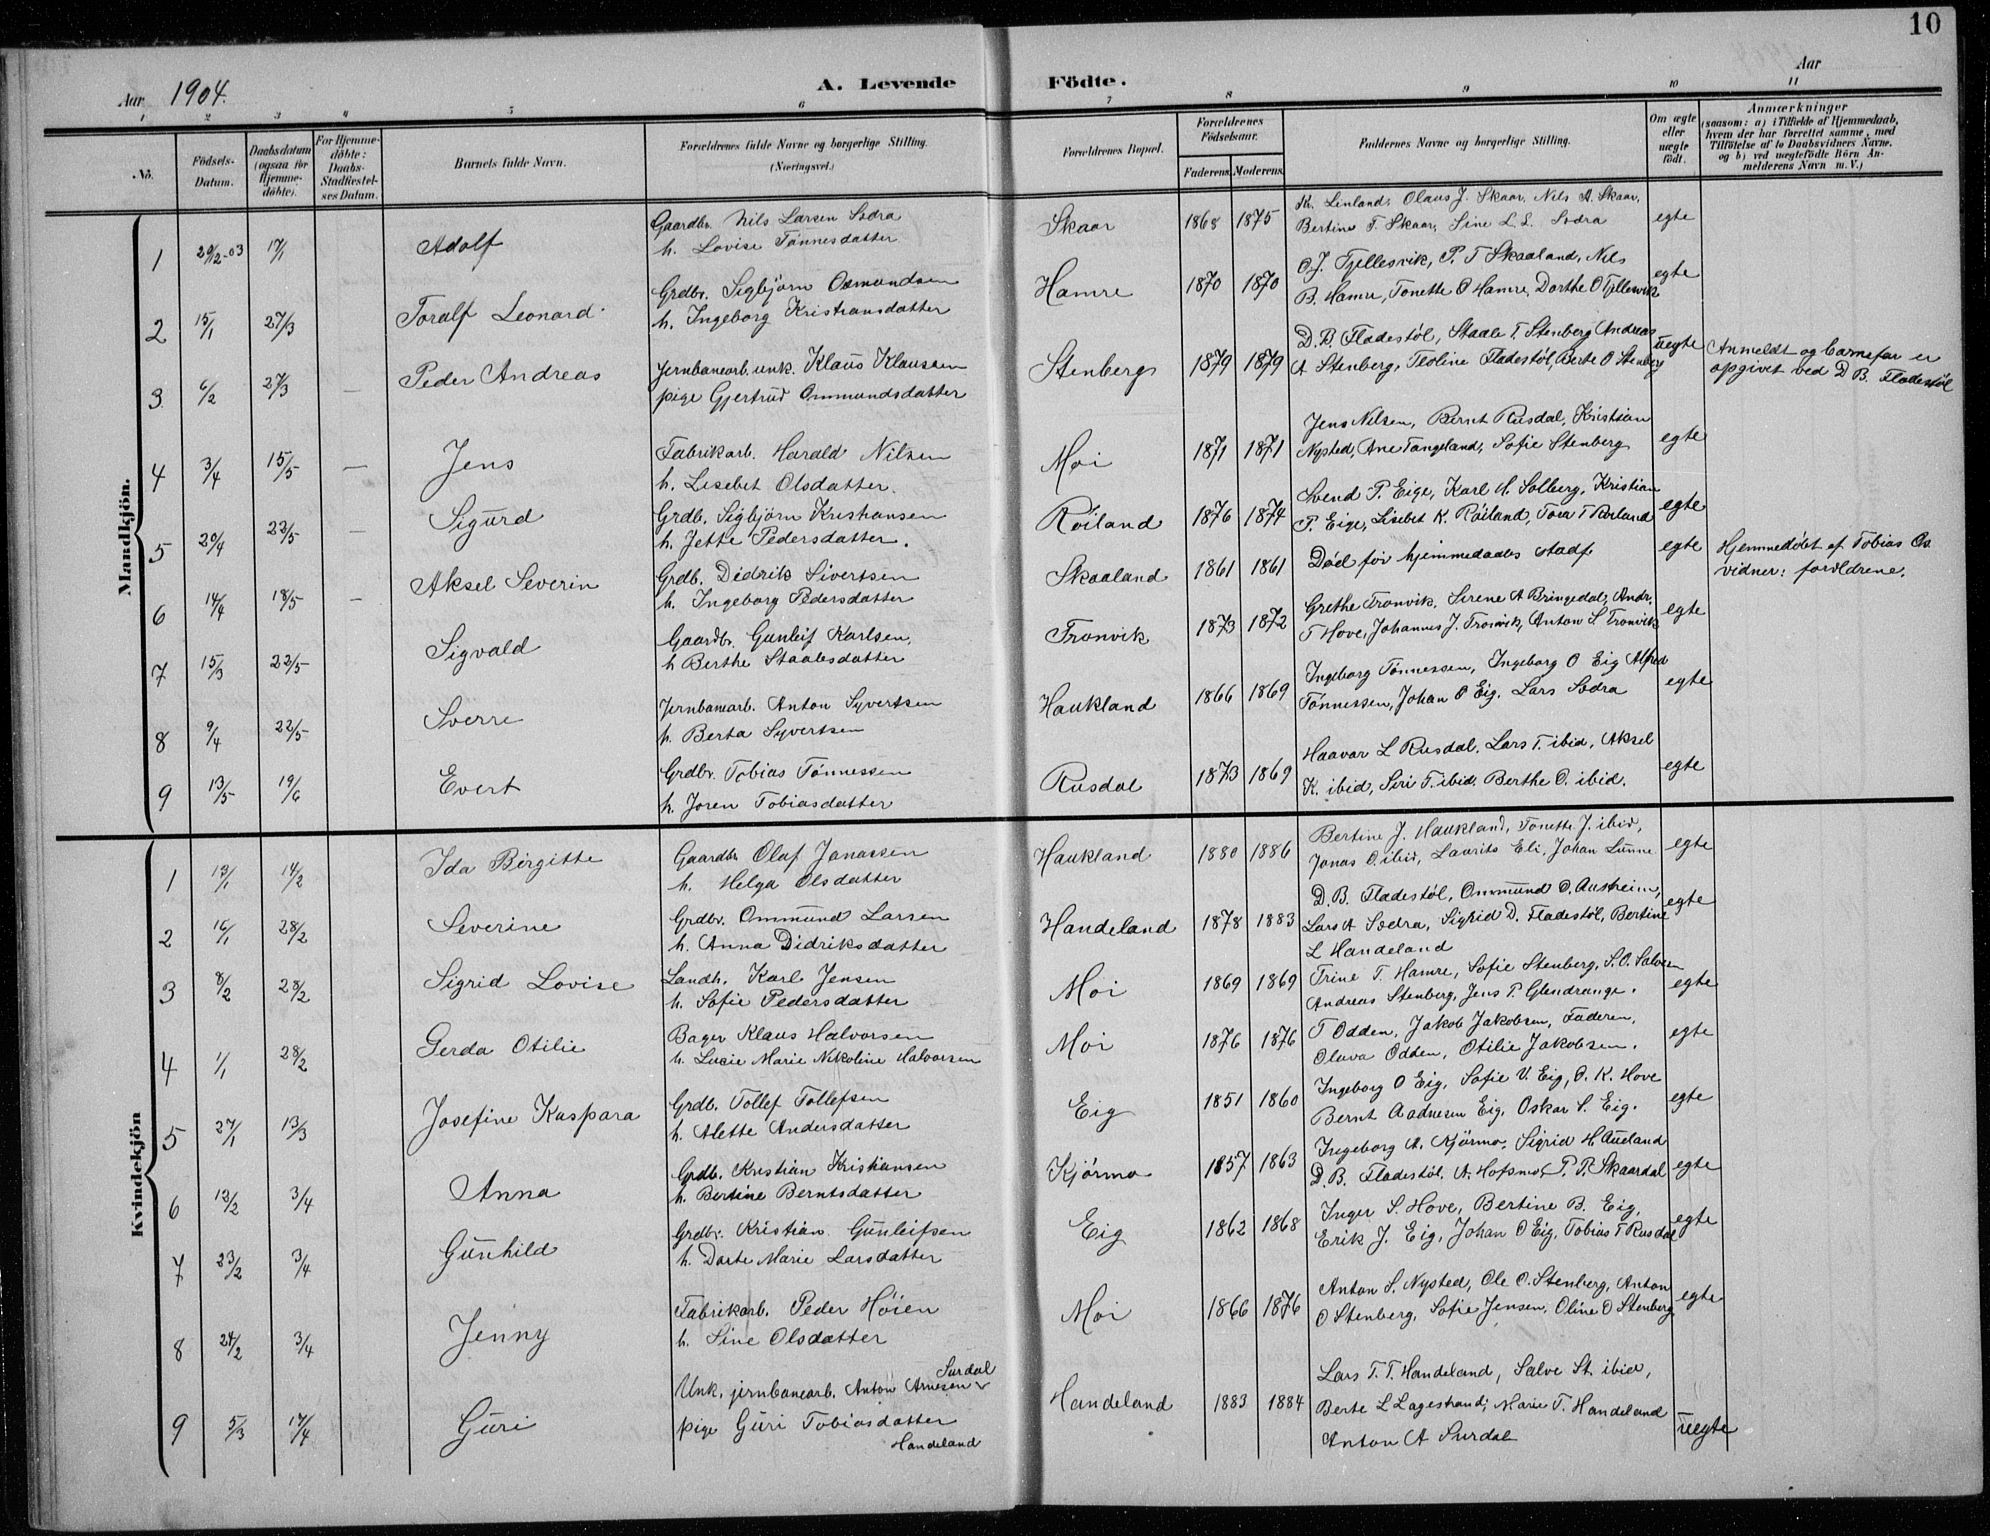 10
Aar 1904. A. Levende Födte. Aar
1 2 3 4 5 6 7 8 9 10 11
No. Födsels-Datum. Daabsdatum (ogsaa for Hjemme-döbte). For Hjemme-döbte: Daabs-Stadfæstel-ses Datum. Barnets fulde Navn. Forældrenes fulde Navne og borgerlige Stilling. (Næringsvei.) Forældrenes Bopæl. Forældrenes Födselsaar. Faderens. Moderens. Faddernes Navne og borgerlige Stilling. Om ægte eller uægte födt. Anmærkninger (saasom: a) i Tilfælde af Hjemmedaab, hvem der har forrettet samme, med Tilföielse af to Daabsvidners Navne, og b) ved uægtefödte Börn An-melderens Navn m. V.)
Mandkjön.
Gaardbr. Nils Larsen Sodra K. Linland, Olaus J. Skaar, Nils A. Skaar,
1 20/12-03 17/1 — Adolf h. Lovise Tönnesdatter Skaar 1868 1875 Bertine T. Skaar, Sine L. L. Sodra egte
Grdbr. Sigbjörn Osmundsen O. J. Tjellesvik, P. T Skaaland, Nils
2 15/1 27/3 — Toralf Leonard h. Ingeborg Kristiansdatter Hamre 1870 1870 B. Hamre, Tonette O Hamre, Dorthe O Tjellesvik egte
Jernbanearb. unk. Klaus Klaussen D. B. Fladestøl, Staale T Stenberg Andreas Anmeldt og barnefar er
3 6/2 27/3 — Peder Andreas pige Gjertrud Ommundsdatter Stenberg 1879 1879 A Stenberg, Teoline Fladestøl, Berte O Stenberg uegte opgivet ved D B. Fladestøl
Fabrikarb. Harald Nilsen Jens Nilsen, Bernt Rusdal, Kristian
4 3/4 15/5 — Jens h. Lisebet Olsdatter. Moi 1871 1871 Nysted, Ane Tangeland, Sofie Stenberg egte
Grdb. Sigbjörn Kristiansen Svend P. Eige, Karl M. Solberg, Kristian
5 20/4 22/5 — Sigurd h. Jette Pedersdatter. Röiland 1876 1874 P. Eige, Lisebet K. Röiland, Tora T Röiland egte
Grdb. Didrik Sivertsen Hjemmedöbt af Tobias Os.
6 14/4 18/5 — Aksel Severin h. Ingeborg Pedersdatter Skaaland 1861 1861 Død før hjemmedaabs stadf. egte vidner: forældrene.
Gaardb. Gunleif Karlsen, Grethe Tronvik, Serene A Bringedal, Andr.
7 15/3 22/5 Sigvald h Berthe Staalesdatter Tronvik 1873 1872 T Hove, Johannes J. Tronvik, Anton S Tronvik egte
Jernbanearb. Anton Syvertsen Ingeborg Tönnessen, Ingeborg O Eig Alfred
8 9/4 22/5 Sverre h. Berta Syvertsen Haukland 1866 1869 Tönnessen, Johan O Eig, Lars Sodra egte
Grdbr. Tobias Tönnessen Haavar L Rusdal, Lars T. ibid, Aksel
9 13/5 19/6 Evert h. Joren Tobiasdatter Rusdal 1873 1869 K. ibid, Siri T. ibid. Berthe O. ibid. egte
Kvindekjön
Gaardbr Olaf Jonassen Bertine J. Haukland, Tonette J. ibid,
1 13/1 14/2 Ida Birgitte h. Helga Olsdatter Haukland 1880 1886 Jonas O. ibid, Laurits Eli, Johan Lunne egte
Grdbr. Ommund Larsen D. B. Fladestøl, Ommund O. Austreim,
2 16/1 28/2 Severine h. Anna Didriksdatter Handeland 1878 1883 Lars A Sodra, Sigrid D. Fladestøl, Bertine egte
L Handeland
Landh. Karl Jensen Trine T. Hamre, Sofie Stenberg, S. O. Salvesen
3 8/2 28/2 Sigrid Lovise h. Sofie Pedersdatter Moi 1869 1869 Andreas Stenberg, Jens P. Glendrange. egte
Bager Klaus Halvorsen T Odden, Jakob Jakobsen, Faderen,
4 1/1 28/2 Gerda Otilie h. Lucie Marie Nikoline Halvorsen Moi 1876 1876 Olava Odden, Otilie Jakobsen. egte
Grdb. Tollef Tollefsen Ingeborg O Eig, Sofie V. Eig, O. K. Hove
5 27/1 13/3 Josefine Kaspara h. Alette Andersdatter Eig 1851 1860 Bernt Aadnesen Eig, Oskar S. Eig. egte
Grdb. Kristian Kristiansen Ingeborg A. Kjörmo, Sigrid H Aueland
6 12/2 3/4 Anna h. Bertine Berntsdatter Kjörmo 1857 1863 D. B. Fladestøl, A. Hofsmo, P. P. Skaardal egte
Grdbr. Kristian Gunleifsen Inger S. Hove, Bertine B. Eig,
7 23/2 3/4 Gunhild h. Dorte Marie Larsdatter Eig 1862 1868 Erik J. Eig, Johan O Eig, Tobias T Rusdal egte
Fabrikarb. Peder Höien Anton S. Nysted, Ole O. Stenberg, Anton
8 24/2 3/4 Jenny h. Sine Olsdatter Moi 1866 1876 O Stenberg, Sofie Jensen, Oline O Stenberg egte
Unk. jernbanearb. Anton Arnesen Surdal Lars T. T. Handeland, Salve St. ibid,
9 5/3 17/4 Guri pige Guri Tobiasdatter Handeland Handeland 1883 1884 Berte L Lagestrand, Marie T. Handeland uegte
Anton A Surdal